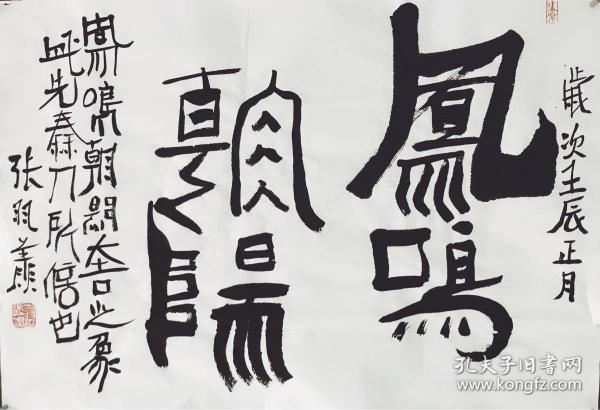 歲次壬辰正月
鳳鳴
朝陽
鳳鳴朝陽大吉之象
此先秦人所信也
张羽翔
孔夫子旧书网
www.kongfz.com